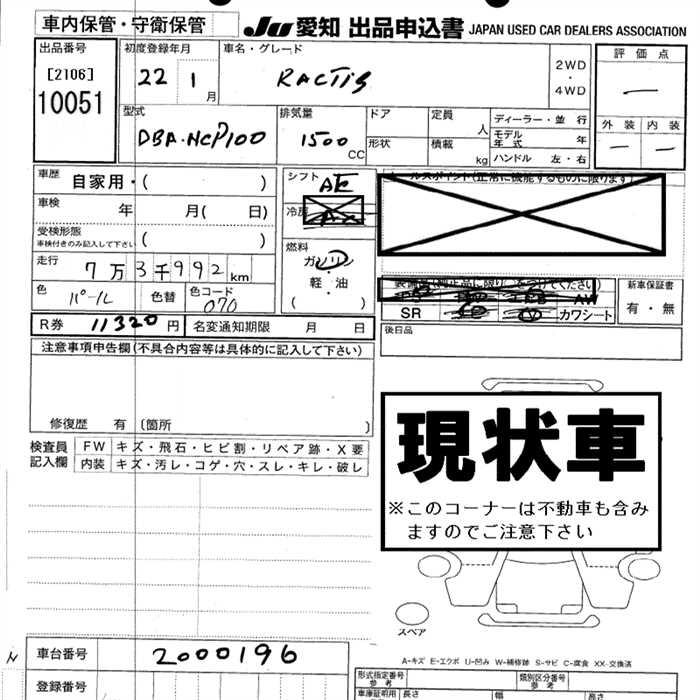 車内保管・守衛保管
JU 愛知 出品申込書 JAPAN USED CAR DEALERS ASSOCIATION
出品番号
[2106]
10051
初度登録年月
22 1月
車名・グレード
RACTIS
2WD
・
4WD
評価点
—
外装 内装
— —
型式
DBA-NCP100
排気量
1500 CC
ドア
形状
定員
人
積載
kg
ディーラー・並 行
モデル年式 年
ハンドル 左・右
車歴 自家用・( )
車検 年 月( 日)
受検形態
車検付きのみ記入して下さい ( )
走行 7万3千992km
色 パール 色替 色コード 070
シフト AT
冷房
燃料
ガソリン
・
軽・油
( )
セールスポイント(正常に機能するものに限ります)
SR カワシート
新車保証書
有・無
後日品
R券 11320円 名変通知期限 月 日
注意事項申告欄(不具合内容等は具体的に記入して下さい)
修復歴 有 (箇所 )
検査員記入欄
FW キズ・飛石・ヒビ割・リペア跡・X要
内装 キズ・汚レ・コゲ・穴・スレ・キレ・破レ
現状車
※このコーナーは不動車も含み
ますのでご注意下さい
スペア
A-キズ E-エクボ U-凹み W-補修跡 S-サビ C-腐食 XX-交換済
車台番号 2000196
登録番号
形式指定番号
参考
類別区分番号
参考
車庫証明用
参考
長さ
高さ